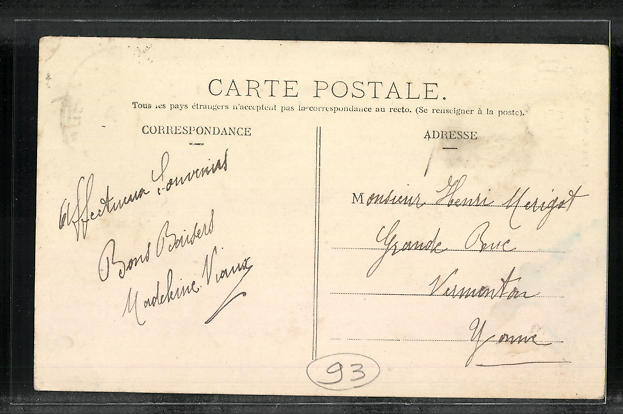 CARTE POSTALE.
Tous les pays étrangers n'acceptent pas la correspondance au recto. (Se renseigner à la poste).
CORRESPONDANCE
Affectueux Souvenirs
Bons Baisers
Madeleine Viaux
ADRESSE
Monsieur Henri Merigot
Grande Rue
Vermenton
Yonne
93